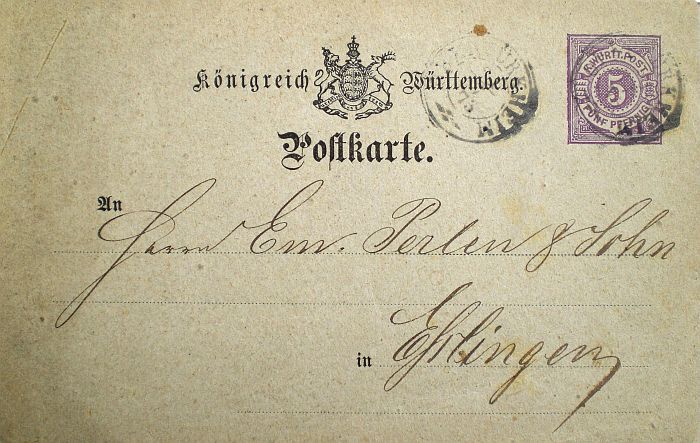 Königreich Württemberg.
Postkarte.
K. WÜRTT. POST
5
FÜNF PFENNIG
An
Herrn Em. Perlen & Sohn
in Eßlingen